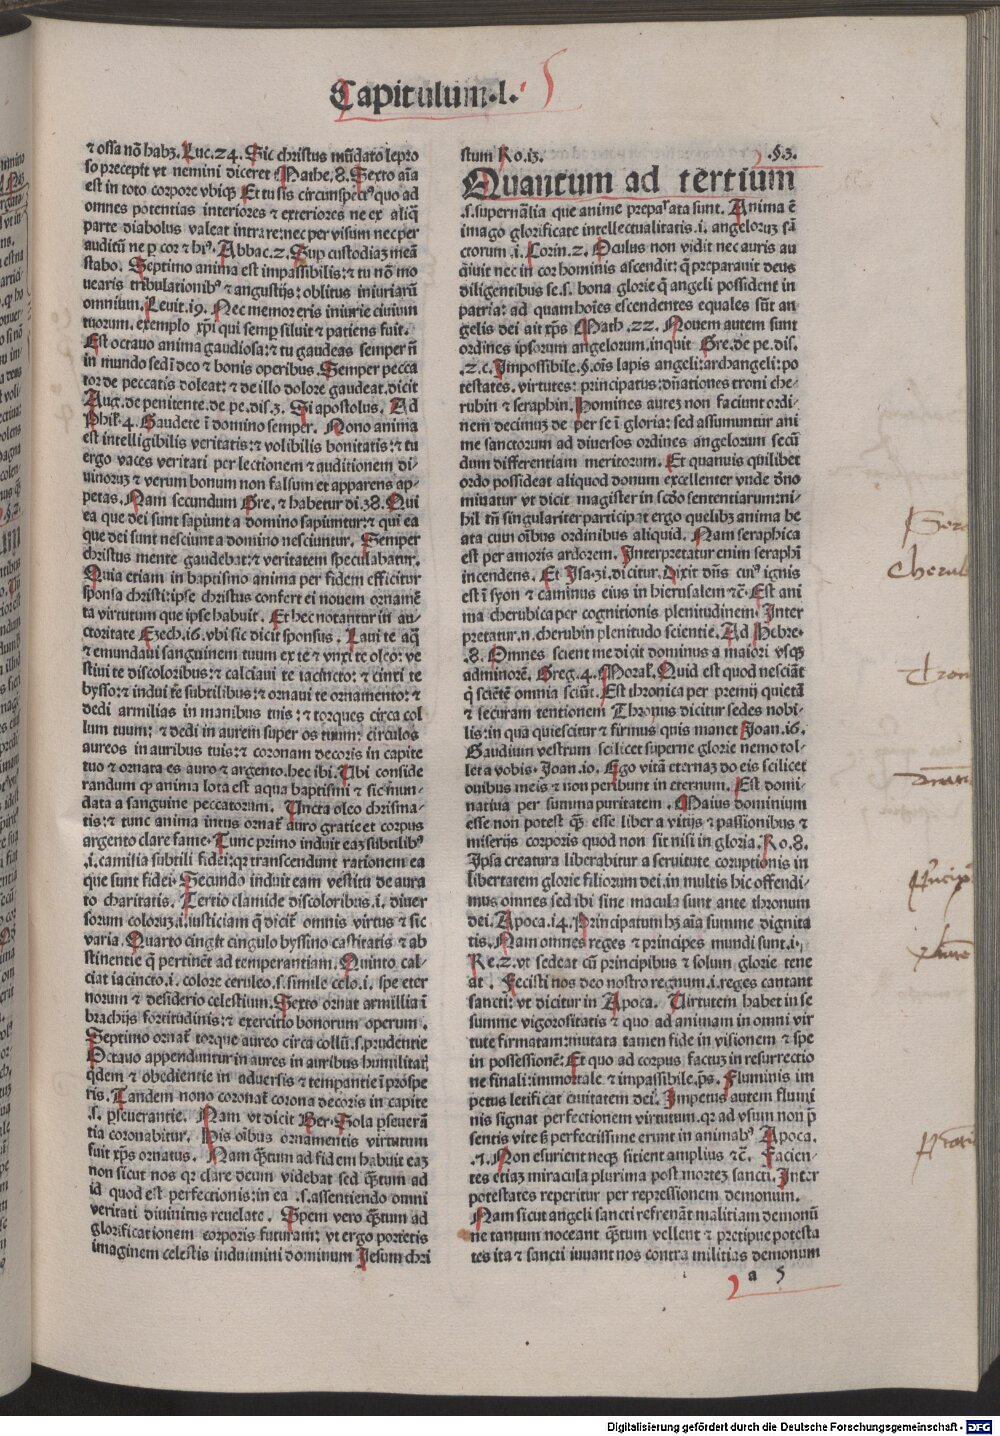 Capitulum .I.
⁊ ossa nõ habꝫ. Luc.24. Sic christus mñdato lepro
so precepit vt nemini diceret Mathe.8. Sexto aĩa
est in toto corpore vbiqꝫ Et tu sis circunspectꝰ quo ad
omnes potentias interiores ⁊ exteriores ne ex aliq̃
parte diabolus valeat intrare: nec per visum nec per
auditũ ne ꝑ cor ⁊ hĩꝰ. Abbac.2. Suꝑ custodiaꝫ meã
stabo. Septimo anima est impassibilis: ⁊ tu nõ mo
vearis tribulationibꝰ ⁊ angustijs: oblitus iniuriarũ
omnium. Leuit.19. Nec memor eris iniurie ciuium
tuorum. exemplo xp̃i qui semꝑ siluit ⁊ patiens fuit.
Est octauo anima gaudiosa: ⁊ tu gaudeas semper ñ
in mundo sed ĩ deo ⁊ bonis operibus. Semper pecca
tor de peccatis doleat: ⁊ de illo dolore gaudeat. dicit
Aug. de penitente. de pe. dis.3. Si apostolus. Ad
Phil̃.4. Gaudete ĩ domino semper. Nono anima
est intelligibilis veritatis: ⁊ volibilis bonitatis: ⁊ tu
ergo vaces veritati per lectionem ⁊ auditionem di-
uinoruꝫ ⁊ verum bonum non falsum et apparens ap-
petas. Nam secundum Gre. ⁊ habetur di.38. Qui
ea que dei sunt sapiunt a domino sapiuntur: ⁊ qui ea
que dei sunt nesciunt a domino nesciuntur. Semper
christus mente gaudebat: ⁊ veritatem speculabatur.
Quia etiam in baptismo anima per fidem efficitur
sponsa christi: ipse christus confert ei nouem ornamẽ
ta virtutum que ipse habuit. Et hec notantur in au-
ctoritate Ezech.16. vbi sic dicit sponsus. Laui te aq̃
⁊ emundaui sanguinem tuum ex te ⁊ vnxi te oleo: ve
stiui te discoloribus: ⁊ calciaui te iacincto: ⁊ cinxi te
bysso: ⁊ indui te subtilibus: ⁊ ornaui te ornamento: ⁊
dedi armilias in manibus tuis: ⁊ torques circa col
lum tuum: ⁊ dedi in aurem super os tuum: circulos
aureos in auribus tuis: ⁊ coronam decoris in capite
tuo ⁊ ornata es auro ⁊ argento. hec ibi. Ubi conside
randum ꝙ anima lota est aqua baptismi ⁊ sic mun-
data a sanguine peccatorum. Uncta oleo chrisma-
tis: ⁊ tunc anima intus ornat᷑ auro gratie et corpus
argento clare fame. Tunc primo induit eaꝫ subtilibꝰ
.i. camisia subtili fidei: qꝛ transcendunt rationem ea
que sunt fidei. Secundo induit eam vestitu de aura
to charitatis. Tertio clamide discoloribus .i. diuer
sorum coloruꝫ .i. iusticiam q̃ dicit᷑ omnis virtus ⁊ sic
varia. Quarto cingit᷑ cingulo byssino castitatis ⁊ ab
stinentie q̃ pertinẽt ad temperantiam. Quinto cal-
ciat iacincto .i. colore ceruleo .s. simile celo .i. spe eter
norum ⁊ desiderio celestium. Sexto ornat armillia ĩ
brachijs fortitudinis: ⁊ exercitio bonorum operum.
Septimo ornat᷑ torque aureo circa collũ .s. prudentie
Octauo appenduntur inaures in auribus humilitat᷑
q̃dem ⁊ obedientie in aduersis ⁊ temꝑantie ĩ prospe
ris. Tandem nono coronat᷑ corona decoris in capite
.s. ꝑseuerantie. Nam vt dicit Ber. Sola ꝑseuerã
tia coronabitur. His oĩbus ornamentis virtutum
fuit xp̃s ornatus. Nam q̃ntum ad fidem habuit eaꝫ
non sicut nos qꝛ clare deum videbat sed q̃ntum ad
id quod est perfectionis: in ea .s. assentiendo omni
veritati diuinitus reuelate. Spem vero q̃ntum ad
glorificationem corporis futuram: vt ergo portetis
imaginem celestis induimini dominum Jesum chri
stum Ro.13. .§.3.
Quantum ad tertium
.s. supernalia que anime preparata sunt. Anima ẽ
imago glorificate intellectualitatis .i. angeloruꝫ sã
ctorum .i. Corin.2. Oculus non vidit nec auris au
diuit nec in cor hominis ascendit: q̃ preparauit deus
diligentibus se .s. bona glorie q̃ angeli possident in
patria: ad quam hoĩes ascendentes equales sũt an
gelis dei ait xp̃s Math.22. Nouem autem sunt
ordines ipsorum angelorum. inquit Gre. de pe. dis.
.2.c. Impossibile. §. oĩs lapis angeli: archangeli: po
testates. virtutes: principatus: dñationes troni che-
rubin ⁊ seraphin. Homines auteꝫ non faciunt ordi-
nem decimuꝫ de per se ĩ gloria: sed assumuntur ani
me sanctorum ad diuersos ordines angelorum secũ
dum differentiam meritorum. Et quamuis quilibet
ordo possideat aliquod donum excellenter vnde dẽno
minatur vt dicit magister in scd̃o sententiarum: ni-
hil tñ singulariter participat ergo quelibꝫ anima be
ata cum oĩbus ordinibus aliquid. Nam seraphica
est per amoris ardorem. Interpretatur enim seraphĩ
incendens. Et Isa.31. dicitur. Dixit dñs cuiꝰ ignis
est ĩ syon ⁊ caminus eius in hierusalem ⁊c̃. Est ani
ma cherubica per cognitionis plenitudinem. Inter
pretatur.n. cherubin plenitudo scientie. Ad Hebre.
.8. Omnes scient me dicit dominus a maiori vsqꝫ
ad minorẽ. Greg.4. Moral̃. Quid est quod nesciãt
q̃ sciẽtẽ omnia sciũt. Est thronica per premij quietã
⁊ securam tentionem Thronus dicitur sedes nobi-
lis: in qua quiescitur ⁊ firmus quis manet Joan.16.
Gaudium vestrum scilicet superne glorie nemo tol-
let a vobis. Joan.10. Ego vitã eternaꝫ do eis scilicet
ouibus meis ⁊ non peribunt in eternum. Est domi-
natiua per summa puritatem. Maius dominium
esse non potest q̃ꝫ esse liber a vitijs ⁊ passionibus ⁊
miserijs corporis quod non sit nisi in gloria. Ro.8.
Ipsa creatura liberabitur a seruitute coruptionis in
libertatem glorie filiorum dei. in multis hic offendi-
mus omnes sed ibi sine macula sunt ante thronum
dei. Apoca.14. Principatum hꝫ aĩa summe dignita
tis. Nam omnes reges ⁊ principes mundi sunt .i.
Re.2. vt sedeat cũ principibus ⁊ solium glorie tene
at. Fecisti nos deo nostro regnum .i. reges cantant
sancti: vt dicitur in Apoca. Uirtutem habet in se
summe vigorositatis ⁊ quo ad animam in omni vir
tute firmatam: mutata tamen fide in visionem ⁊ spe
in possessionẽ: Et quo ad corpus factuꝫ in resurrectio
ne finali: immortale ⁊ impassibile. ps. Fluminis im
petus letificat ciuitatem dei. Impetus autem flumi
nis signat perfectionem virtutum. qꝛ ad vsum non p̃
sentis vite sꝫ perfectissime erunt in animabꝰ Apoca.
.7. Non esurient neqꝫ sitient amplius ⁊c̃. Facien-
tes etiaꝫ miracula plurima post morteꝫ sancti. Inter
potestates reperitur per repressionem demonum.
Nam sicut angeli sancti refrenãt malitiam demonũ
ne tantum noceant q̃ntum vellent ⁊ precipue potesta
tes ita ⁊ sancti iuuant nos contra militias demonum
a 5
Cherub
thron
Digitalisierung gefördert durch die Deutsche Forschungsgemeinschaft - DFG